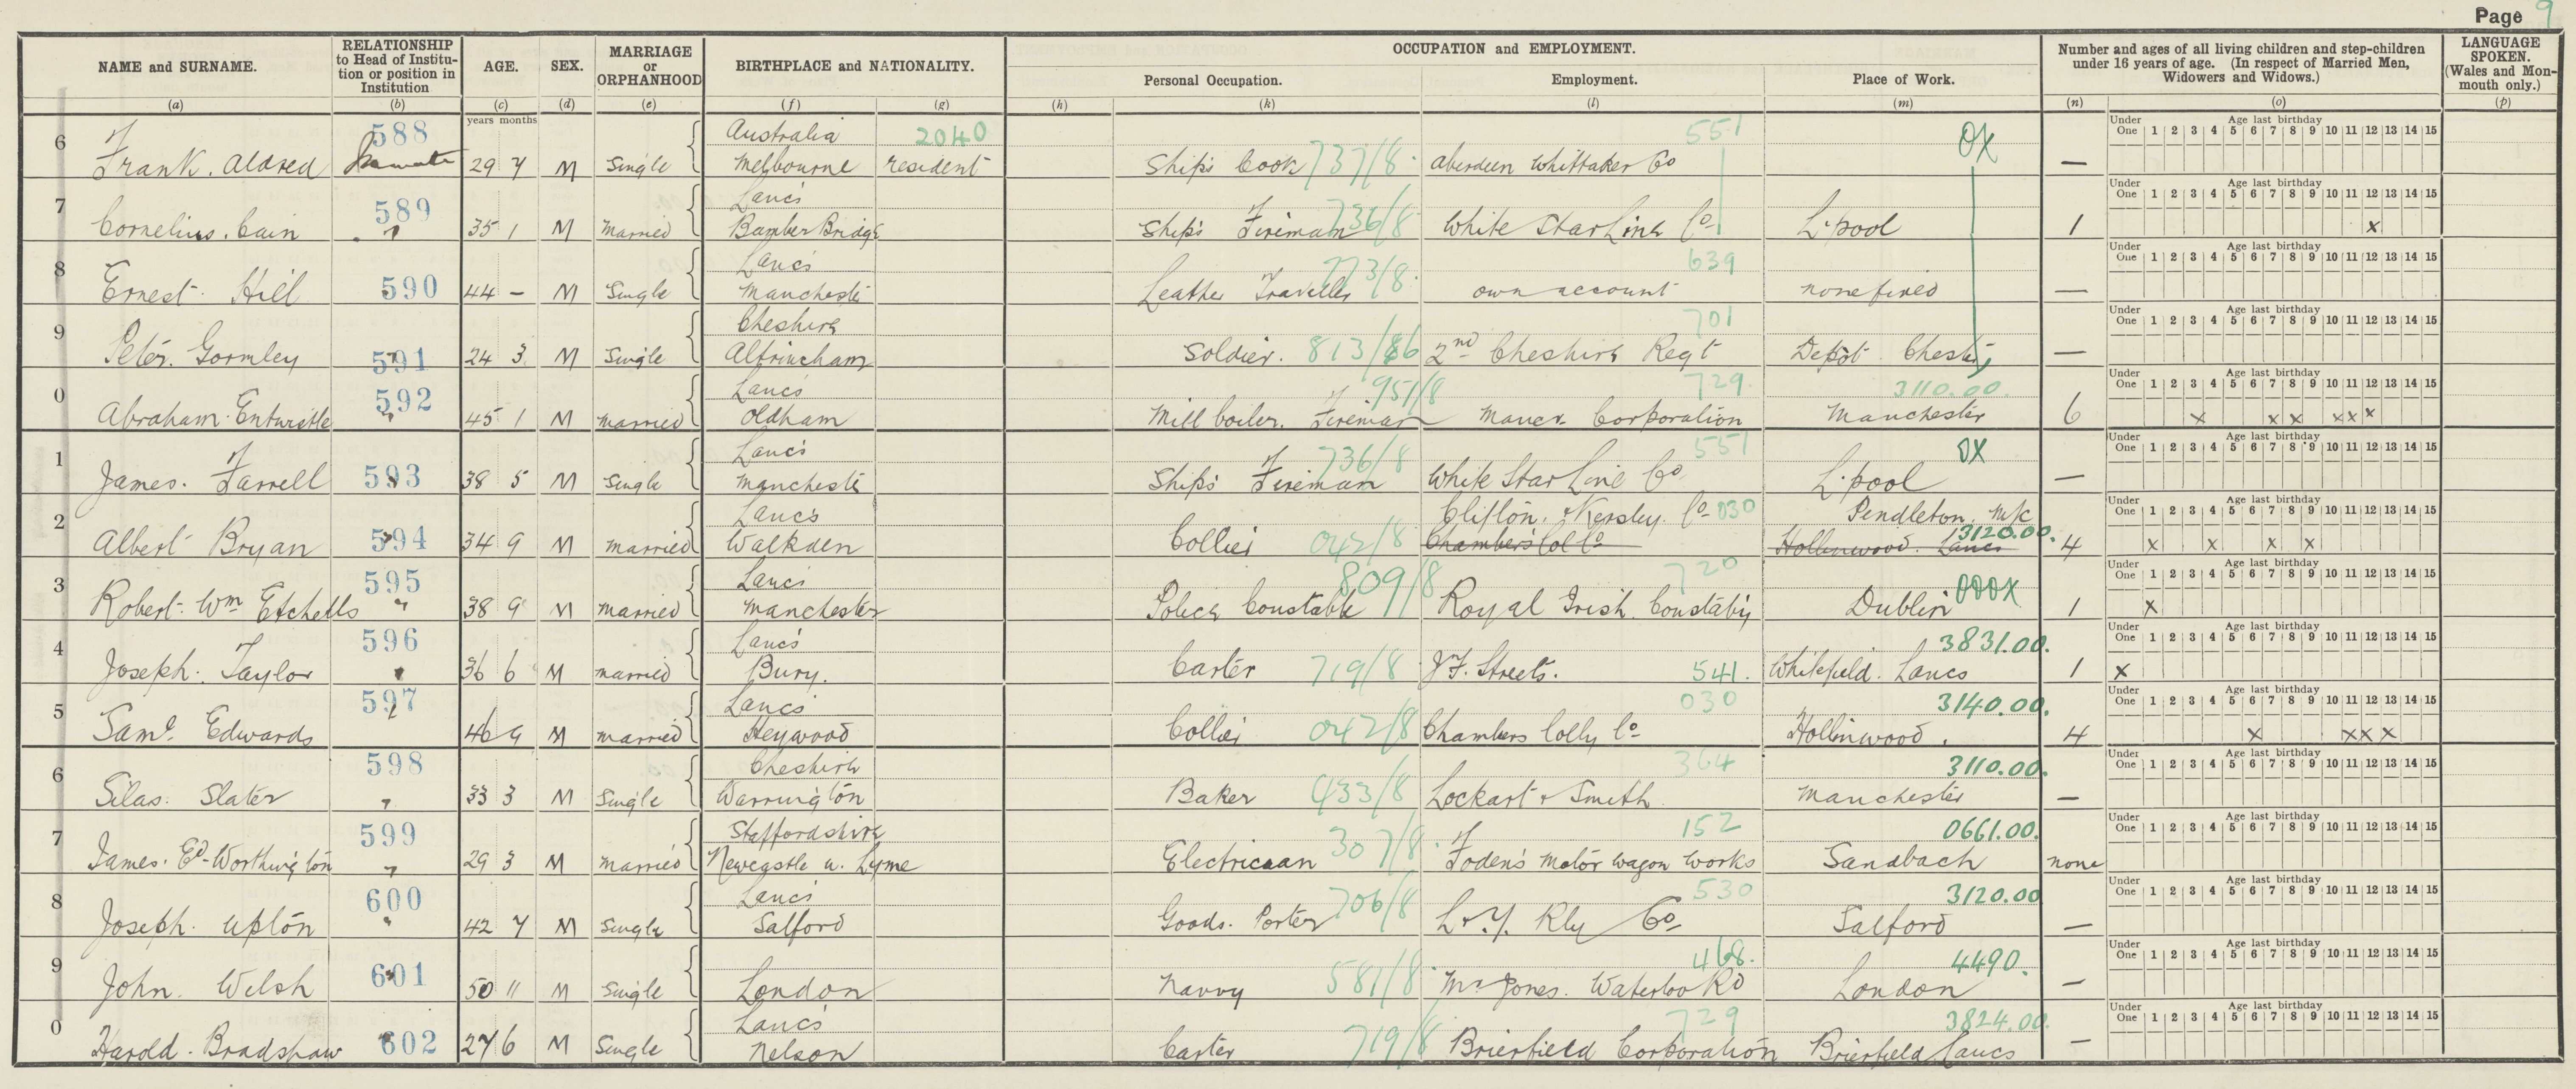 Page 9
NAME and SURNAME.
RELATIONSHIP to Head of Institu-tion or position in Institution
AGE.
SEX.
MARRIAGE or ORPHANHOOD
BIRTHPLACE and NATIONALITY.
OCCUPATION and EMPLOYMENT.
Personal Occupation. Employment. Place of Work.
Number and ages of all living children and step-children under 16 years of age. (In respect of Married Men, Widowers and Widows.)
LANGUAGE SPOKEN. (Wales and Mon-mouth only.)
(a) (b) (c) (d) (e) (f) (g) (h) (k) (l) (m) (n) (o) (p)
years months
588 Australia 2040 551 OX
6 Frank. Aldred Inmate 29 7 M Single Melbourne resident Ship's Cook 737/8 Aberdeen Whittaker Co —
589 Lancs
7 Cornelius. Cain " 35 1 M Married Bamber Bridge Ship's Fireman 736/8 White Star Line Co L'pool 1 x
Lancs 773/8 639
8 Ernest. Hill 590 44 - M Single Manchester Leather Traveller own account none fixed —
Cheshire 701
9 Peter. Gormley 591 24 3 M Single Altrincham Soldier. 813/86 2nd Cheshire Regt Depôt Chester —
592 Lancs 951/8 729 3110.00.
0 Abraham. Entwistle " 45 1 M Married Oldham Mill boiler. Fireman Mancr. Corporation Manchester 6 x x x x x x
Lancs 736/8 551 OX
1 James. Farrell 593 38 5 M Single Manchester Ship's Fireman White Star Line Co L'pool —
Lancs Clifton. Kersley. Co 030 Pendleton M/c
2 Albert Bryan 594 34 9 M Married Walkden Collier 042/8 Chambers Col Co Hollinwood. Lancs 3120.00. 4 x x x x
595 Lancs 809/8 720
3 Robert. Wm Etchells " 38 9 M Married Manchester Police Constable Royal Irish Constaby Dublin 000X 1 x
596 Lancs 3831.00.
4 Joseph. Taylor " 36 6 M Married Bury. Carter 719/8 J.F. Streets. 541. Whitefield. Lancs 1 x
597 Lancs 030 3140.00.
5 Saml. Edwards 46 9 M Married Heywood Collier 042/8 Chambers Colly Co Hollinwood. 4 x x x x
598 Cheshire 364 3110.00.
6 Silas. Slater " 33 3 M Single Warrington Baker 433/8 Lockart & Smith Manchester —
599 Staffordshire 152 0661.00.
7 James. Ed. Worthington " 29 3 M Married Newcastle u. Lyme Electricaan 307/8 Foden's Motor Wagon Works Sandbach none
600 Lancs 706/8 530 3120.00
8 Joseph. Upton " 42 7 M Single Salford Goods. Porter L & Y. Rly Co Salford —
601 468. 4490.
9 John. Welsh 50 11 M Single London Navvy 581/8 Mr Jones. Waterloo Rd London —
Lancs 729 3824.00.
0 Harold. Bradshaw 602 27 6 M Single Nelson Carter 719/8 Brierfield Corporation Brierfield Lancs —
Under One
Age last birthday
1 2 3 4 5 6 7 8 9 10 11 12 13 14 15